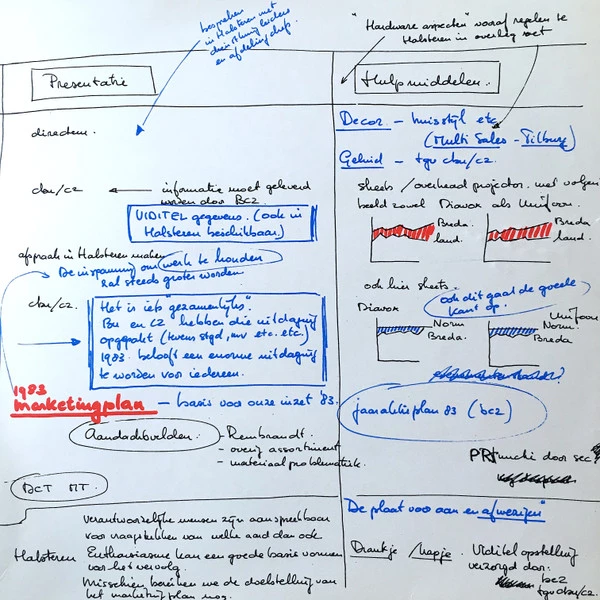 bespreken
in Halsteren met
en afdeling
"Hardware aspecten" vooraf regelen te
Halsteren in overleg met
Presentatie
Hulpmiddelen.
Decor - huisstijl etc.
(Multi Sales - Tilburg)
Geluid - tgv cbu/cz.
directeur.
cbu/cz
informatie moet geleverd
worden door BCZ.
VIDITEL gegevens. (ook in
Halsteren beschikbaar)
sheets / overhead projector. met volgen
beeld zowel Diavox als Unifoon.
Breda
land.
Breda
land.
afspraak in Halsteren maken
De inspanning om werk te houden
zal steeds groter worden
ook hier sheets.
ook dit gaat de goede
kant op.
Diavox
Unifoon
Norm
Breda.
Norm.
Breda
cbu/cz.
Het is iets "gezamenlijks".
Bu en CZ hebben die uitdaging
opgepakt (kwens stgd, mv etc. etc.)
1983. belooft een enorme uitdaging
te worden voor iedereen.
1983
marketingplan - basis voor onze inzet '83.
jaaraktieplan 83 (bcz)
Aandachtsvelden:
- Rembrandt.
- overig assortiment
- materiaal problematiek.
PR door sec
BCT MT.
"De plaat voor aan en afwezigen"
verantwoordelijke mensen zijn aanspreekbaar
voor vraagstukken van welke aard dan ook
Halsteren
Enthousiasme kan een goede basis vormen
voor het vervolg.
Misschien bereiken we de doelstelling van
het marketing plan nog.
Drankje / hapje.
Viditel opstelling
verzorgd door:
bcz
tgv cbu/cz.